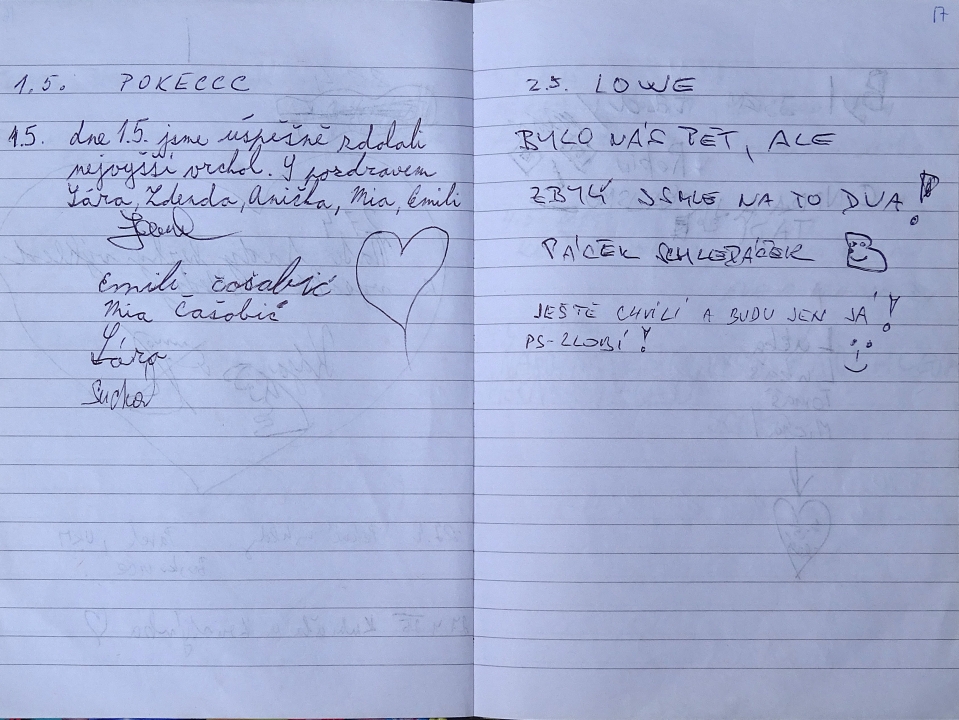 1.5. POKECCC
15. dne 1.5. jsme úspěšně zdolali
nejvyšší vrchol. S pozdravem
Lára, Zdenda, Anička, Mia, Emili
Emili čošabić
Mia Čašobić
Lára
17
2.5. LOWE
BYLO NÁS PET, ALE
ZBYLÍ JSME NA TO DVA!
PÁCEK
JEŠTĚ CHVÍLI A BUDU JEN JÁ!
PS-ZLOBÍ!